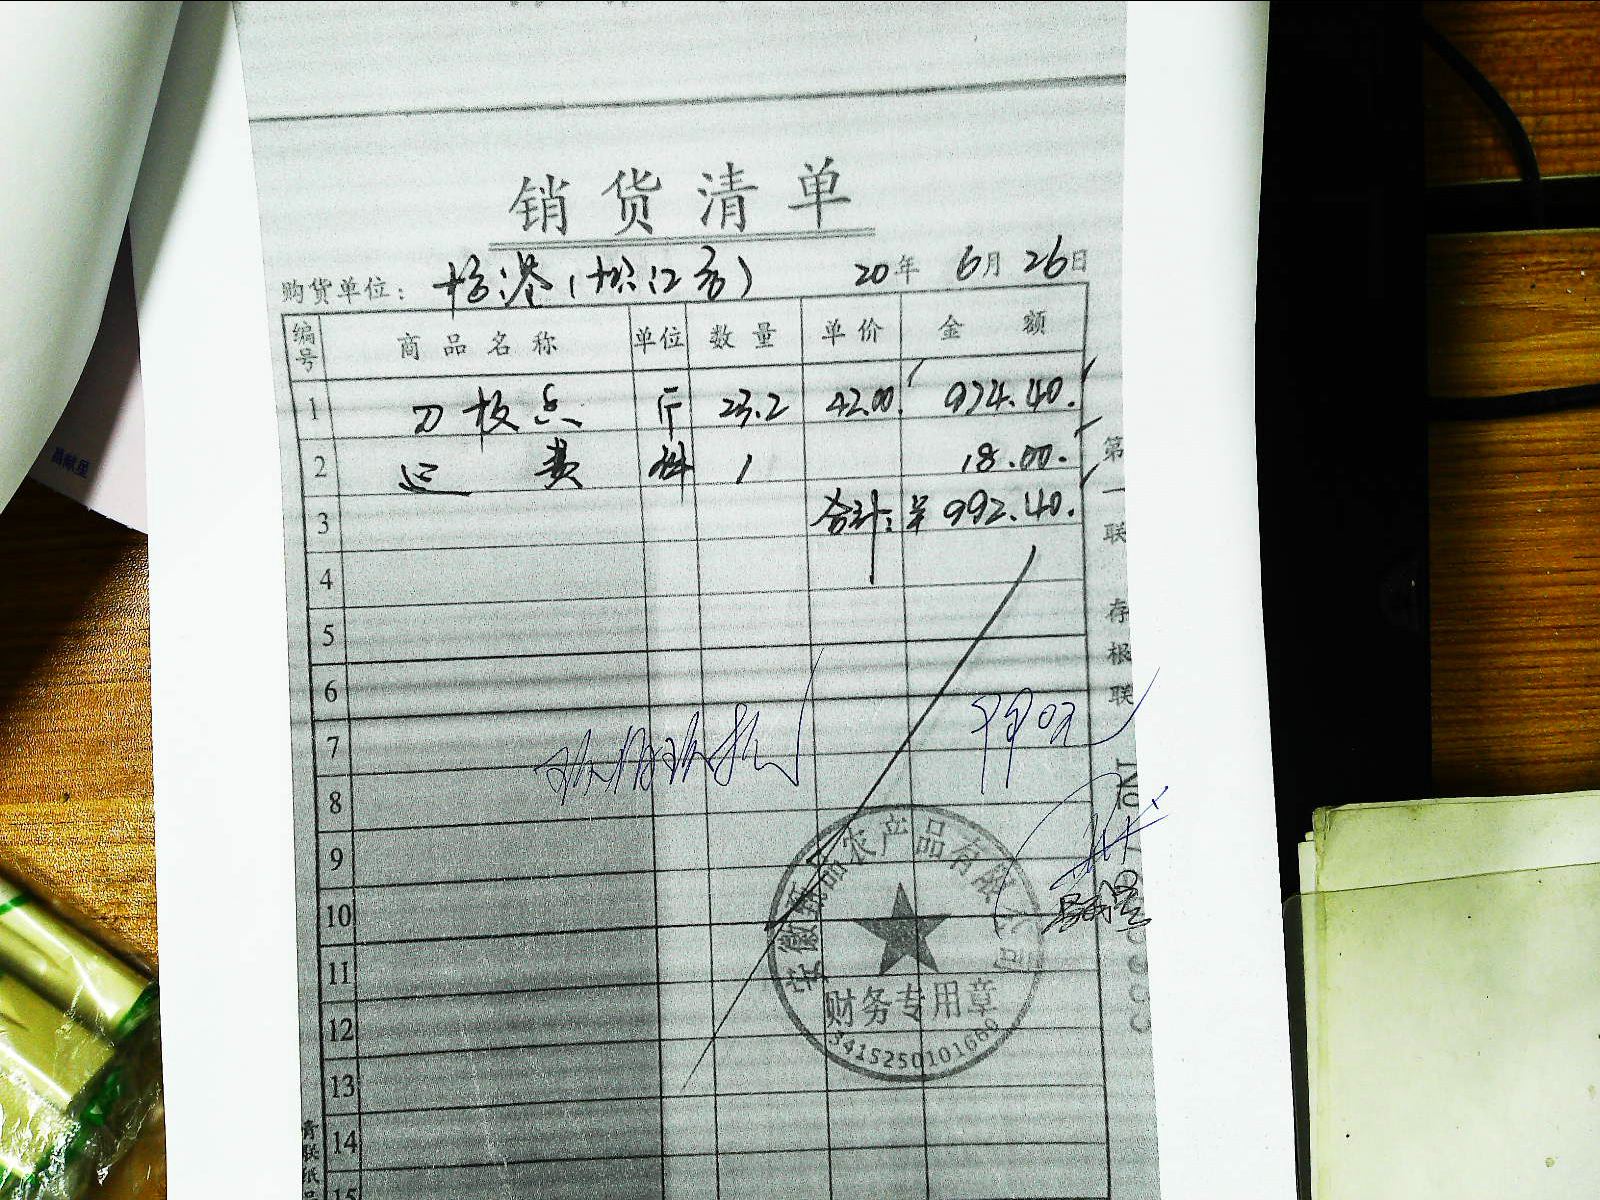 销货清单
购货单位： 20年 6月 26日
编号 商品名称 单位 数量 单价 金额
1 刀板 斤 23.2 42.00 974.40.
2 运费 1 18.00.
3 合计：¥992.40.
4
5
6
7
8
9
10
11
12
13
14
15
第一联 存根联
No
农产品有限公司
财务专用章